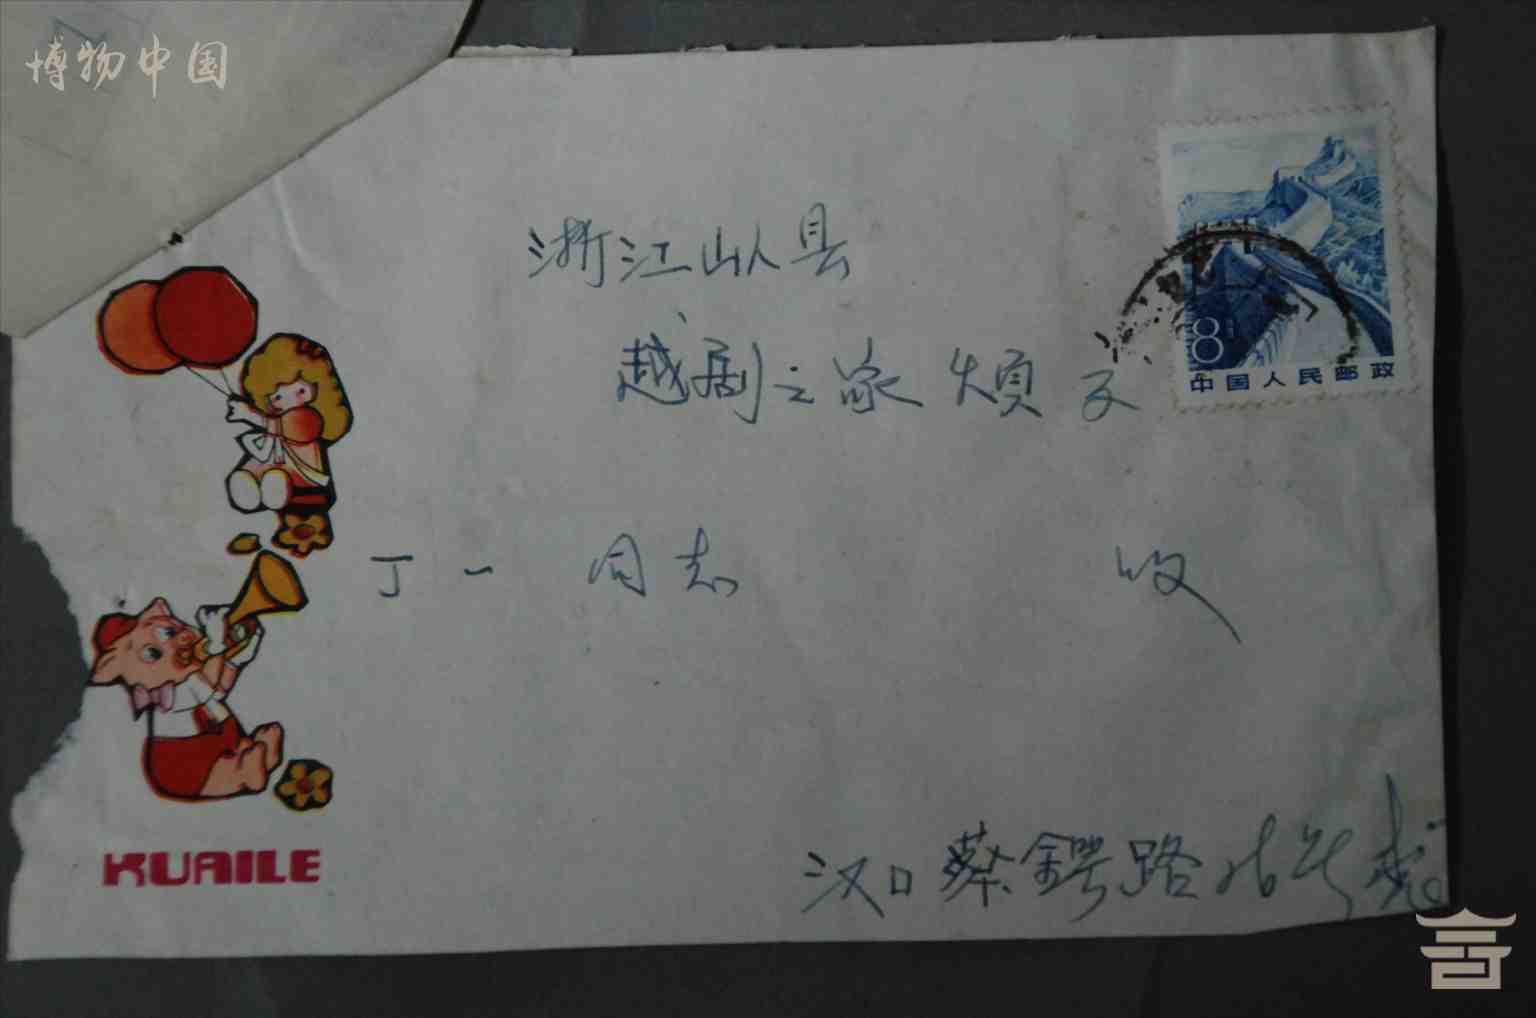 博物中国
浙江 县
越剧之家
8
中国人民邮政
丁一 同志 收
KUAILE
汉口蔡锷路